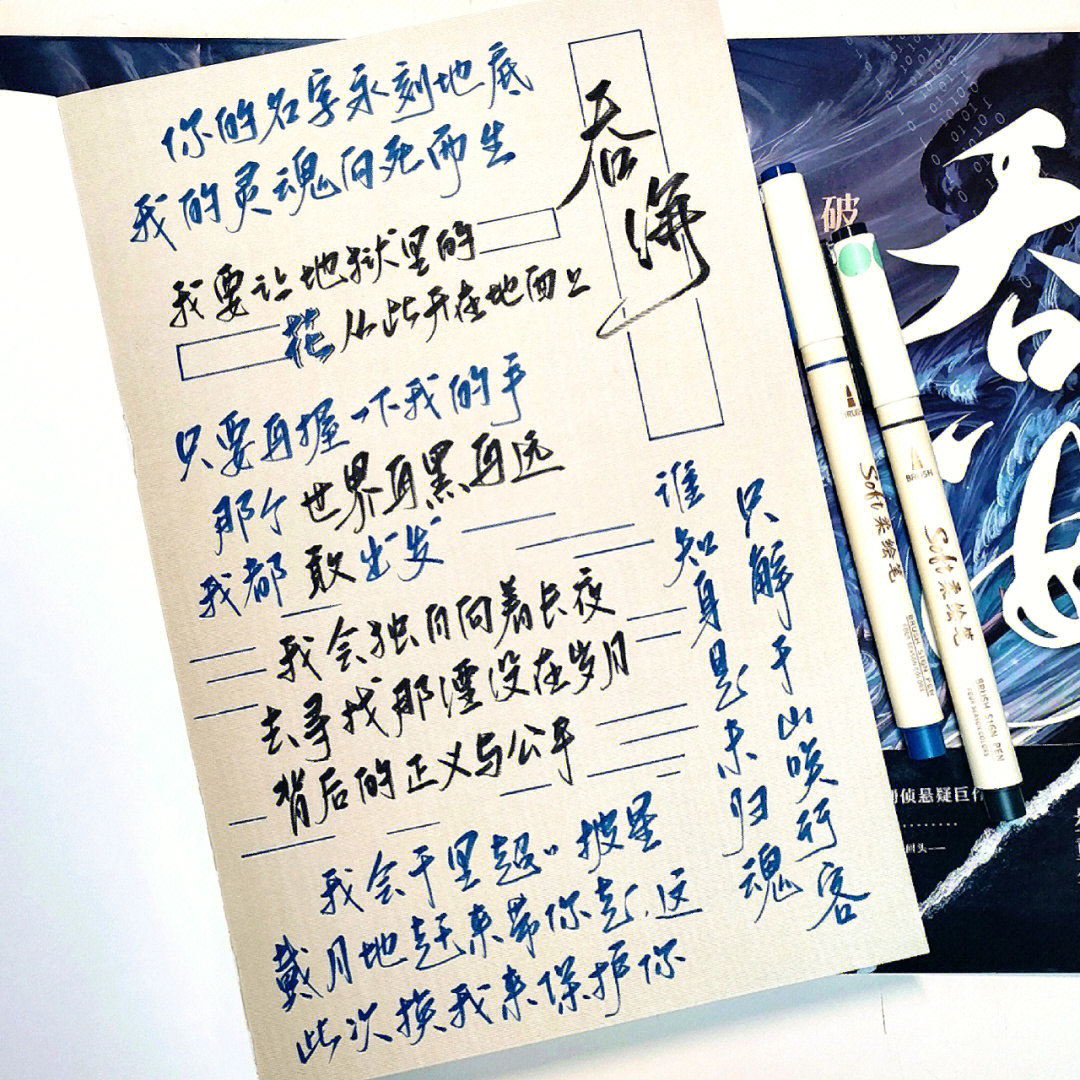 你的名字永刻地底
我的灵魂向死而生
吞海
我要让地狱里的
花从此开在地面上
只要再握一下我的手
那个世界再黑再远
我都敢出发
我会独自向着长夜
去寻找那湮没在岁月
背后的正义与公平
只解千山唤行客
谁知身是未归魂
我会千里迢〃披星
戴月地赶来带你走、这
此次换我来保护你
破
吞海
侦悬疑巨作
回头——
BRUSH
Soft 柔绘笔
BRUSH SIGN PEN
FOUR SEASON COLORS
BRUSH
Soft 柔绘笔
BRUSH SIGN PEN
FOUR SEASON COLORS